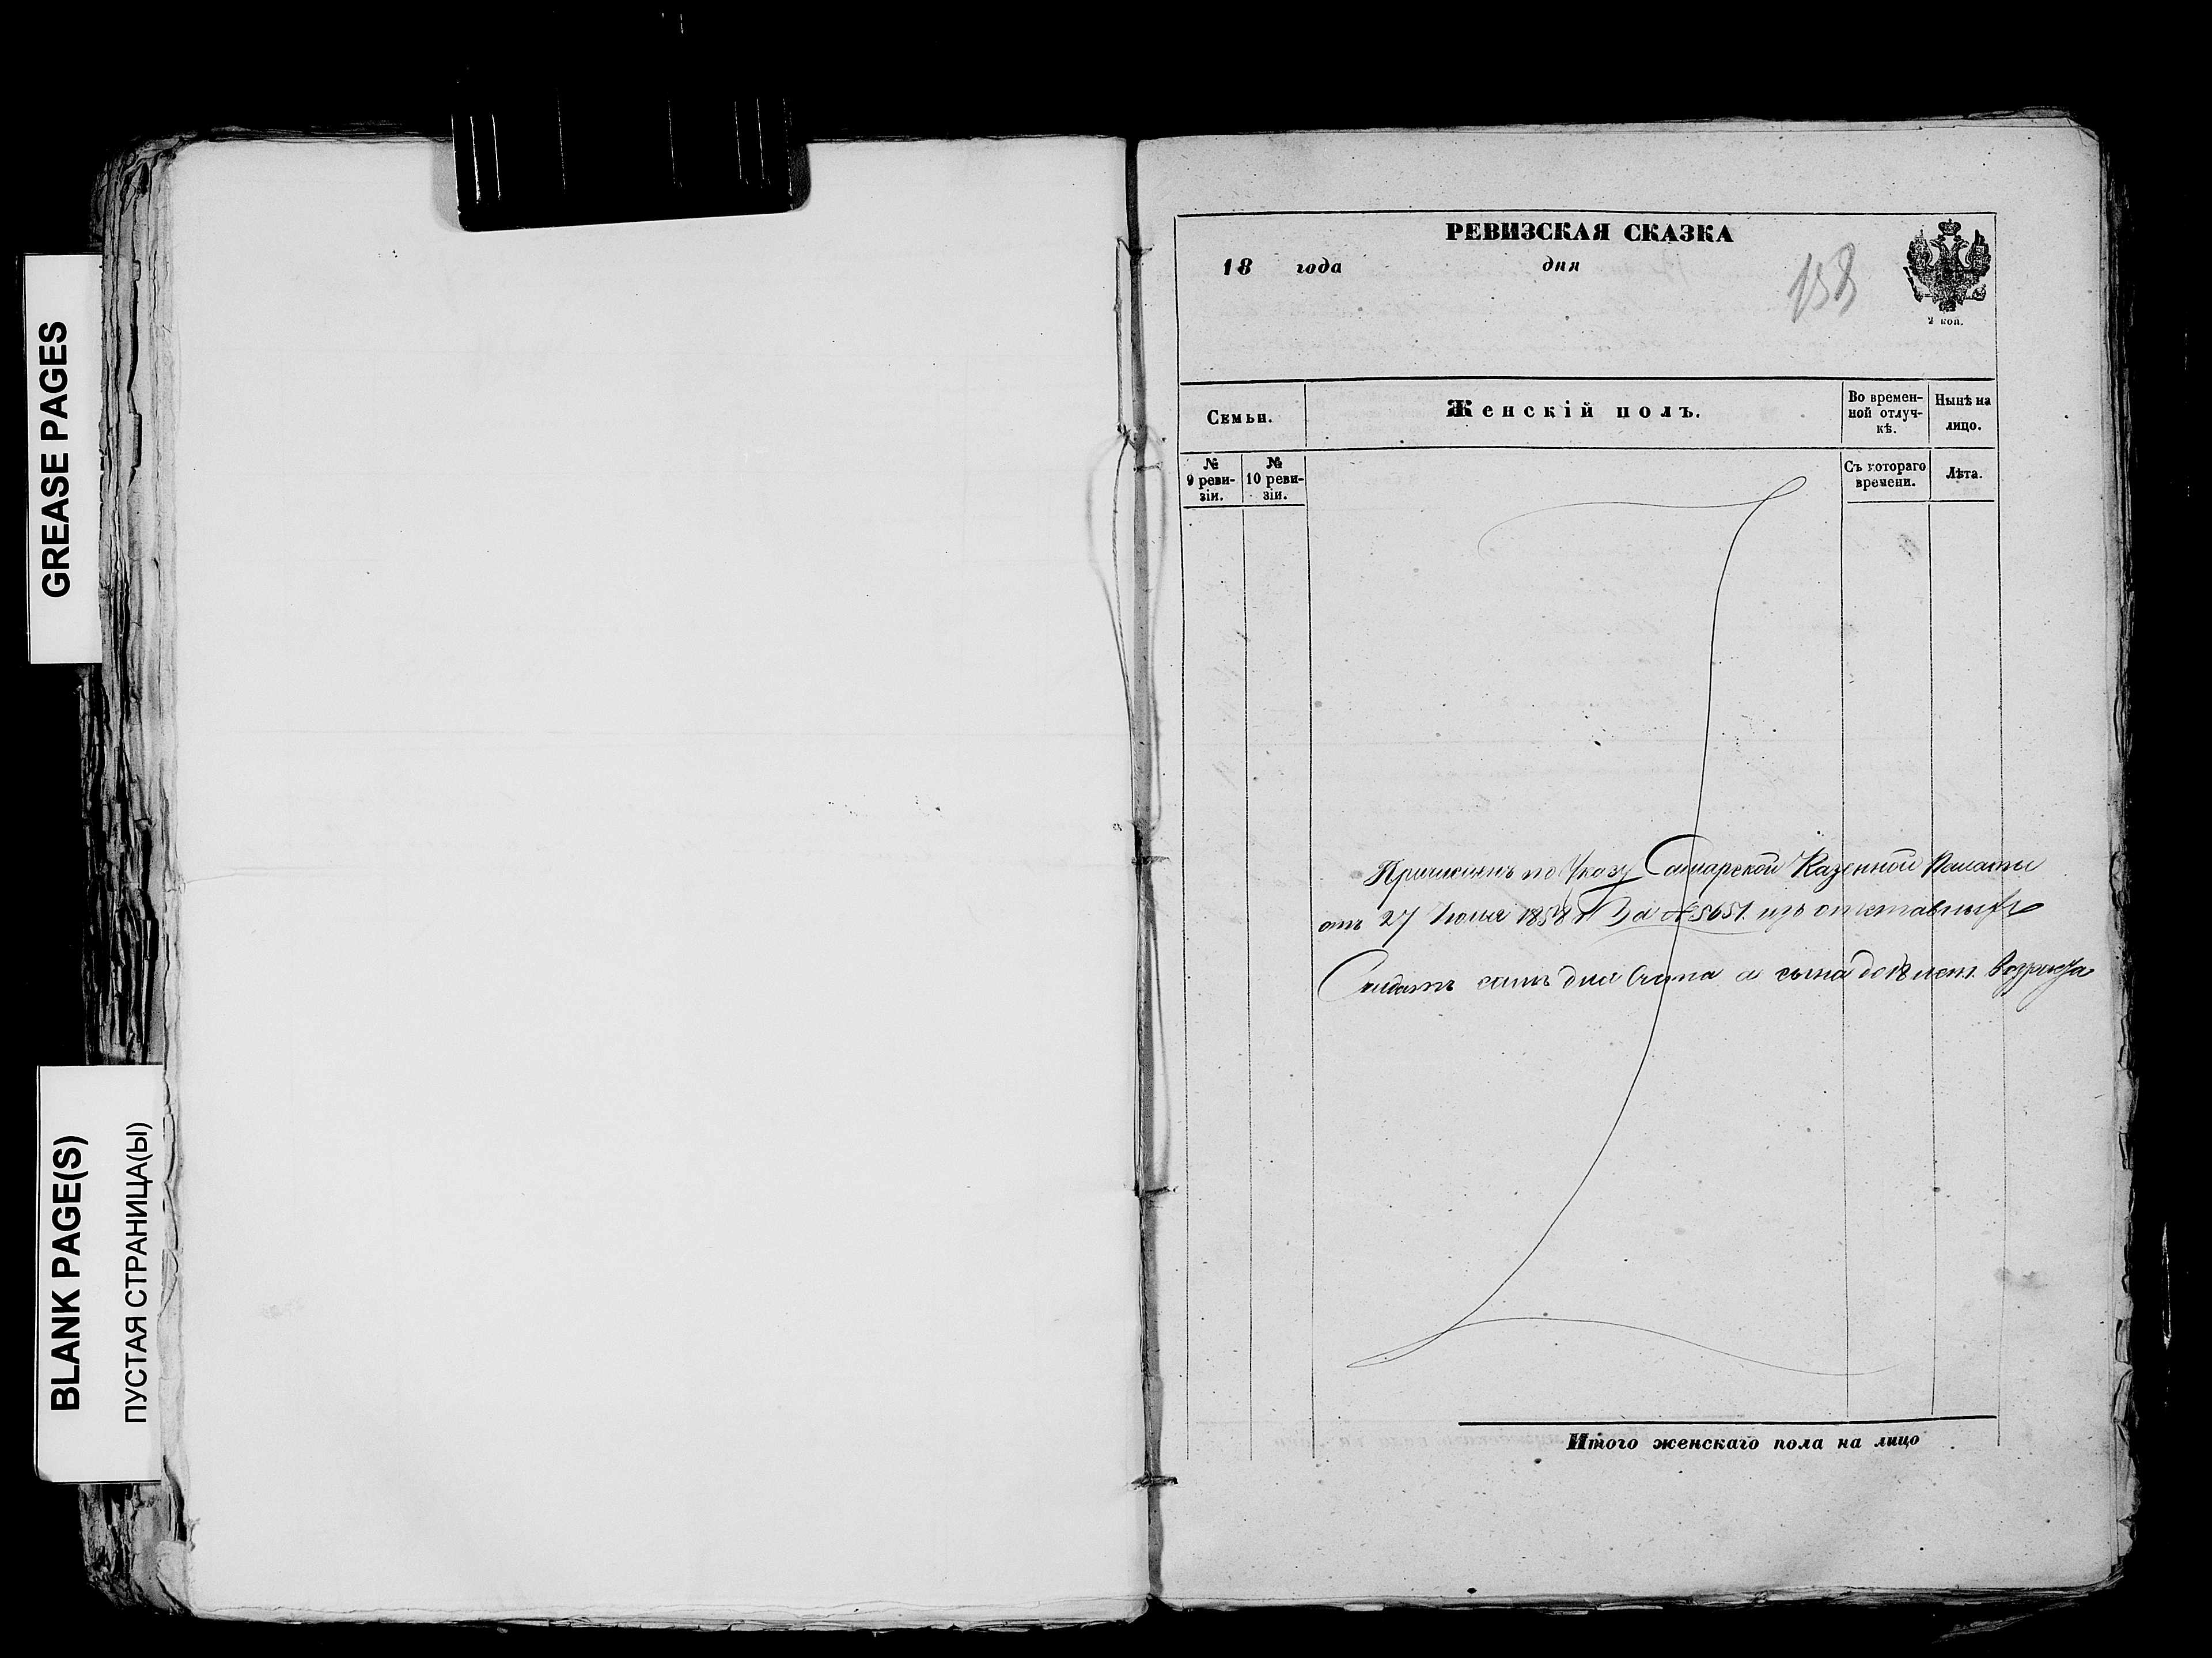 GREASE PAGES
BLANK PAGE(S)
ПУСТАЯ СТРАНИЦА(Ы)
РЕВИЗСКАЯ СКАЗКА
18 года дня
158
2 коп.
Семьи.
Женскій полъ.
Во времен-
ной отлуч-
кѣ.
Нынѣ на
лицо.
№
9 реви-
зіи.
№
10 реви-
зіи.
Съ котораго
времени.
Лѣта.
Причисленъ по Указу Самарской Казенной Палаты
отъ 27 Іюня 1858 г За № 5651. изъ отставныхъ
Солдатъ самъ для счета а сына до 18 лет. Возраста
Итого женскаго пола на лицо